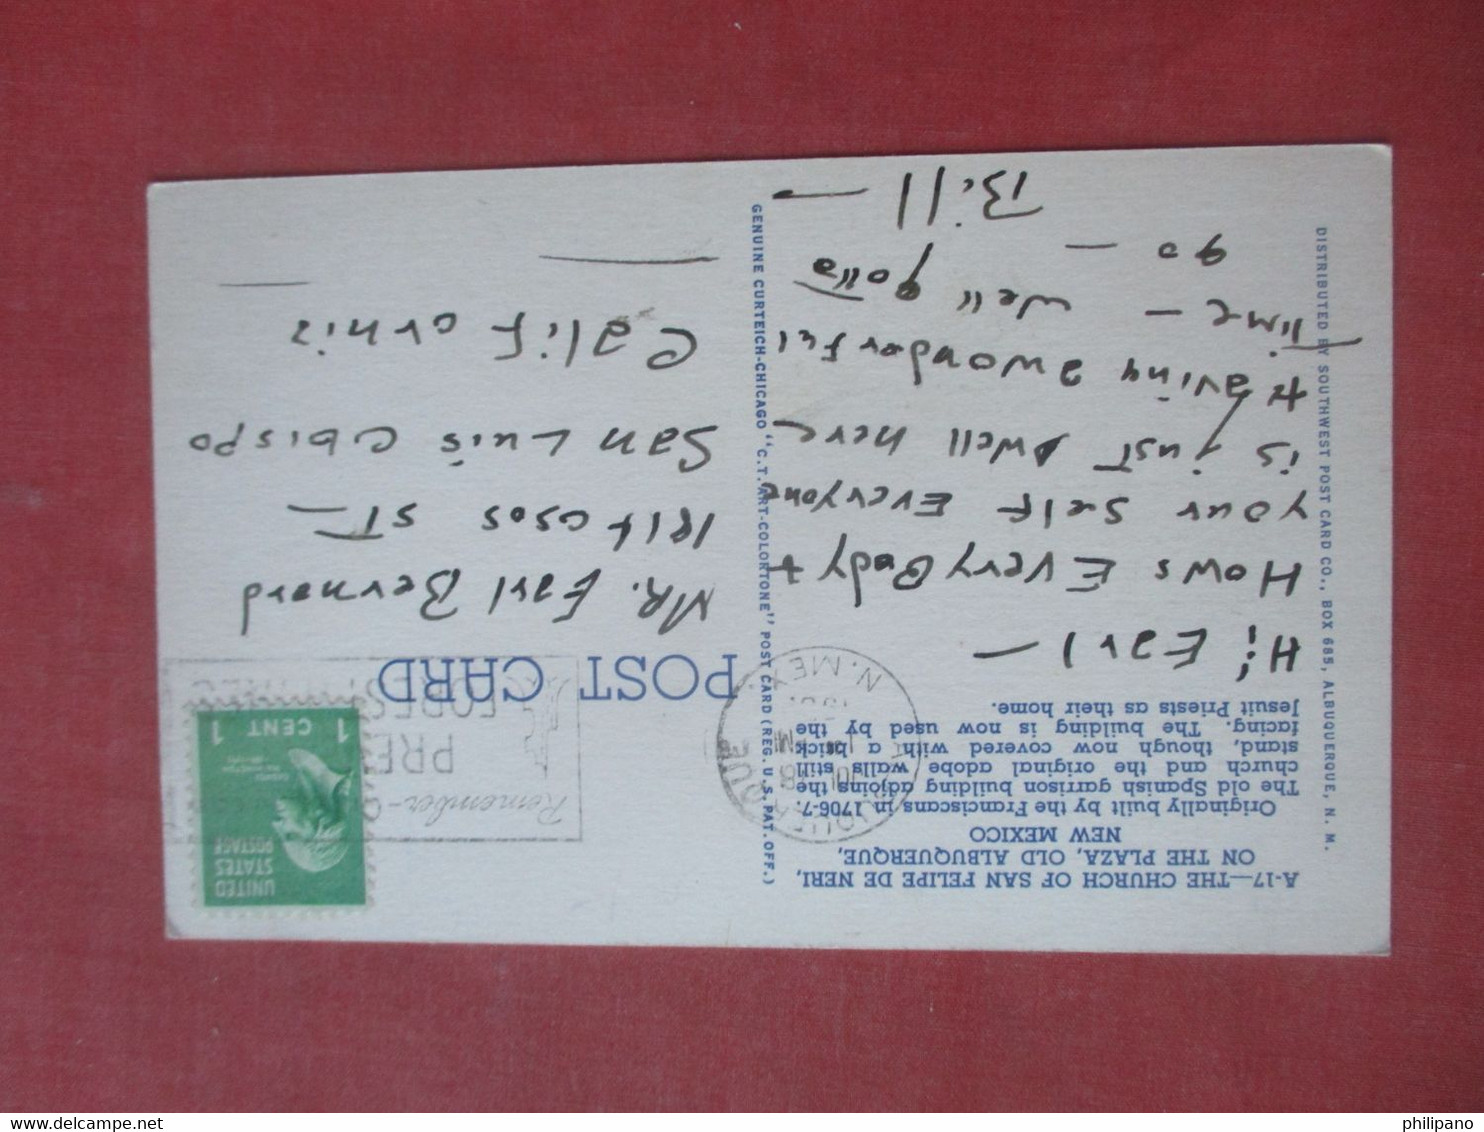 A-17—THE CHURCH OF SAN FELIPE DE NERI,
ON THE PLAZA, OLD ALBUQUERQUE,
NEW MEXICO
Originally built by the Franciscans in 1706-7.
The old Spanish garrison building adjoins the
church and the original adobe walls still
stand, though now covered with a brick
facing. The building is now used by the
Jesuit Priests as their home.
Hi Earl —
Hows EveryBody +
your self Everyone
is just swell here
Having a wonderful
Time — well gotta
go —
Bill —
DISTRIBUTED BY SOUTHWEST POST CARD CO., BOX 685, ALBUQUERQUE, N. M.
GENUINE CURTEICH-CHICAGO "C.T. ART-COLORTONE" POST CARD (REG. U.S. PAT. OFF.)
POST CARD
N. MEX.
Remember-
PRE
FOREST
UNITED
STATES
POSTAGE
1 CENT 1
MR. Earl Bernard
ST —
San Luis Obispo
California
philipano